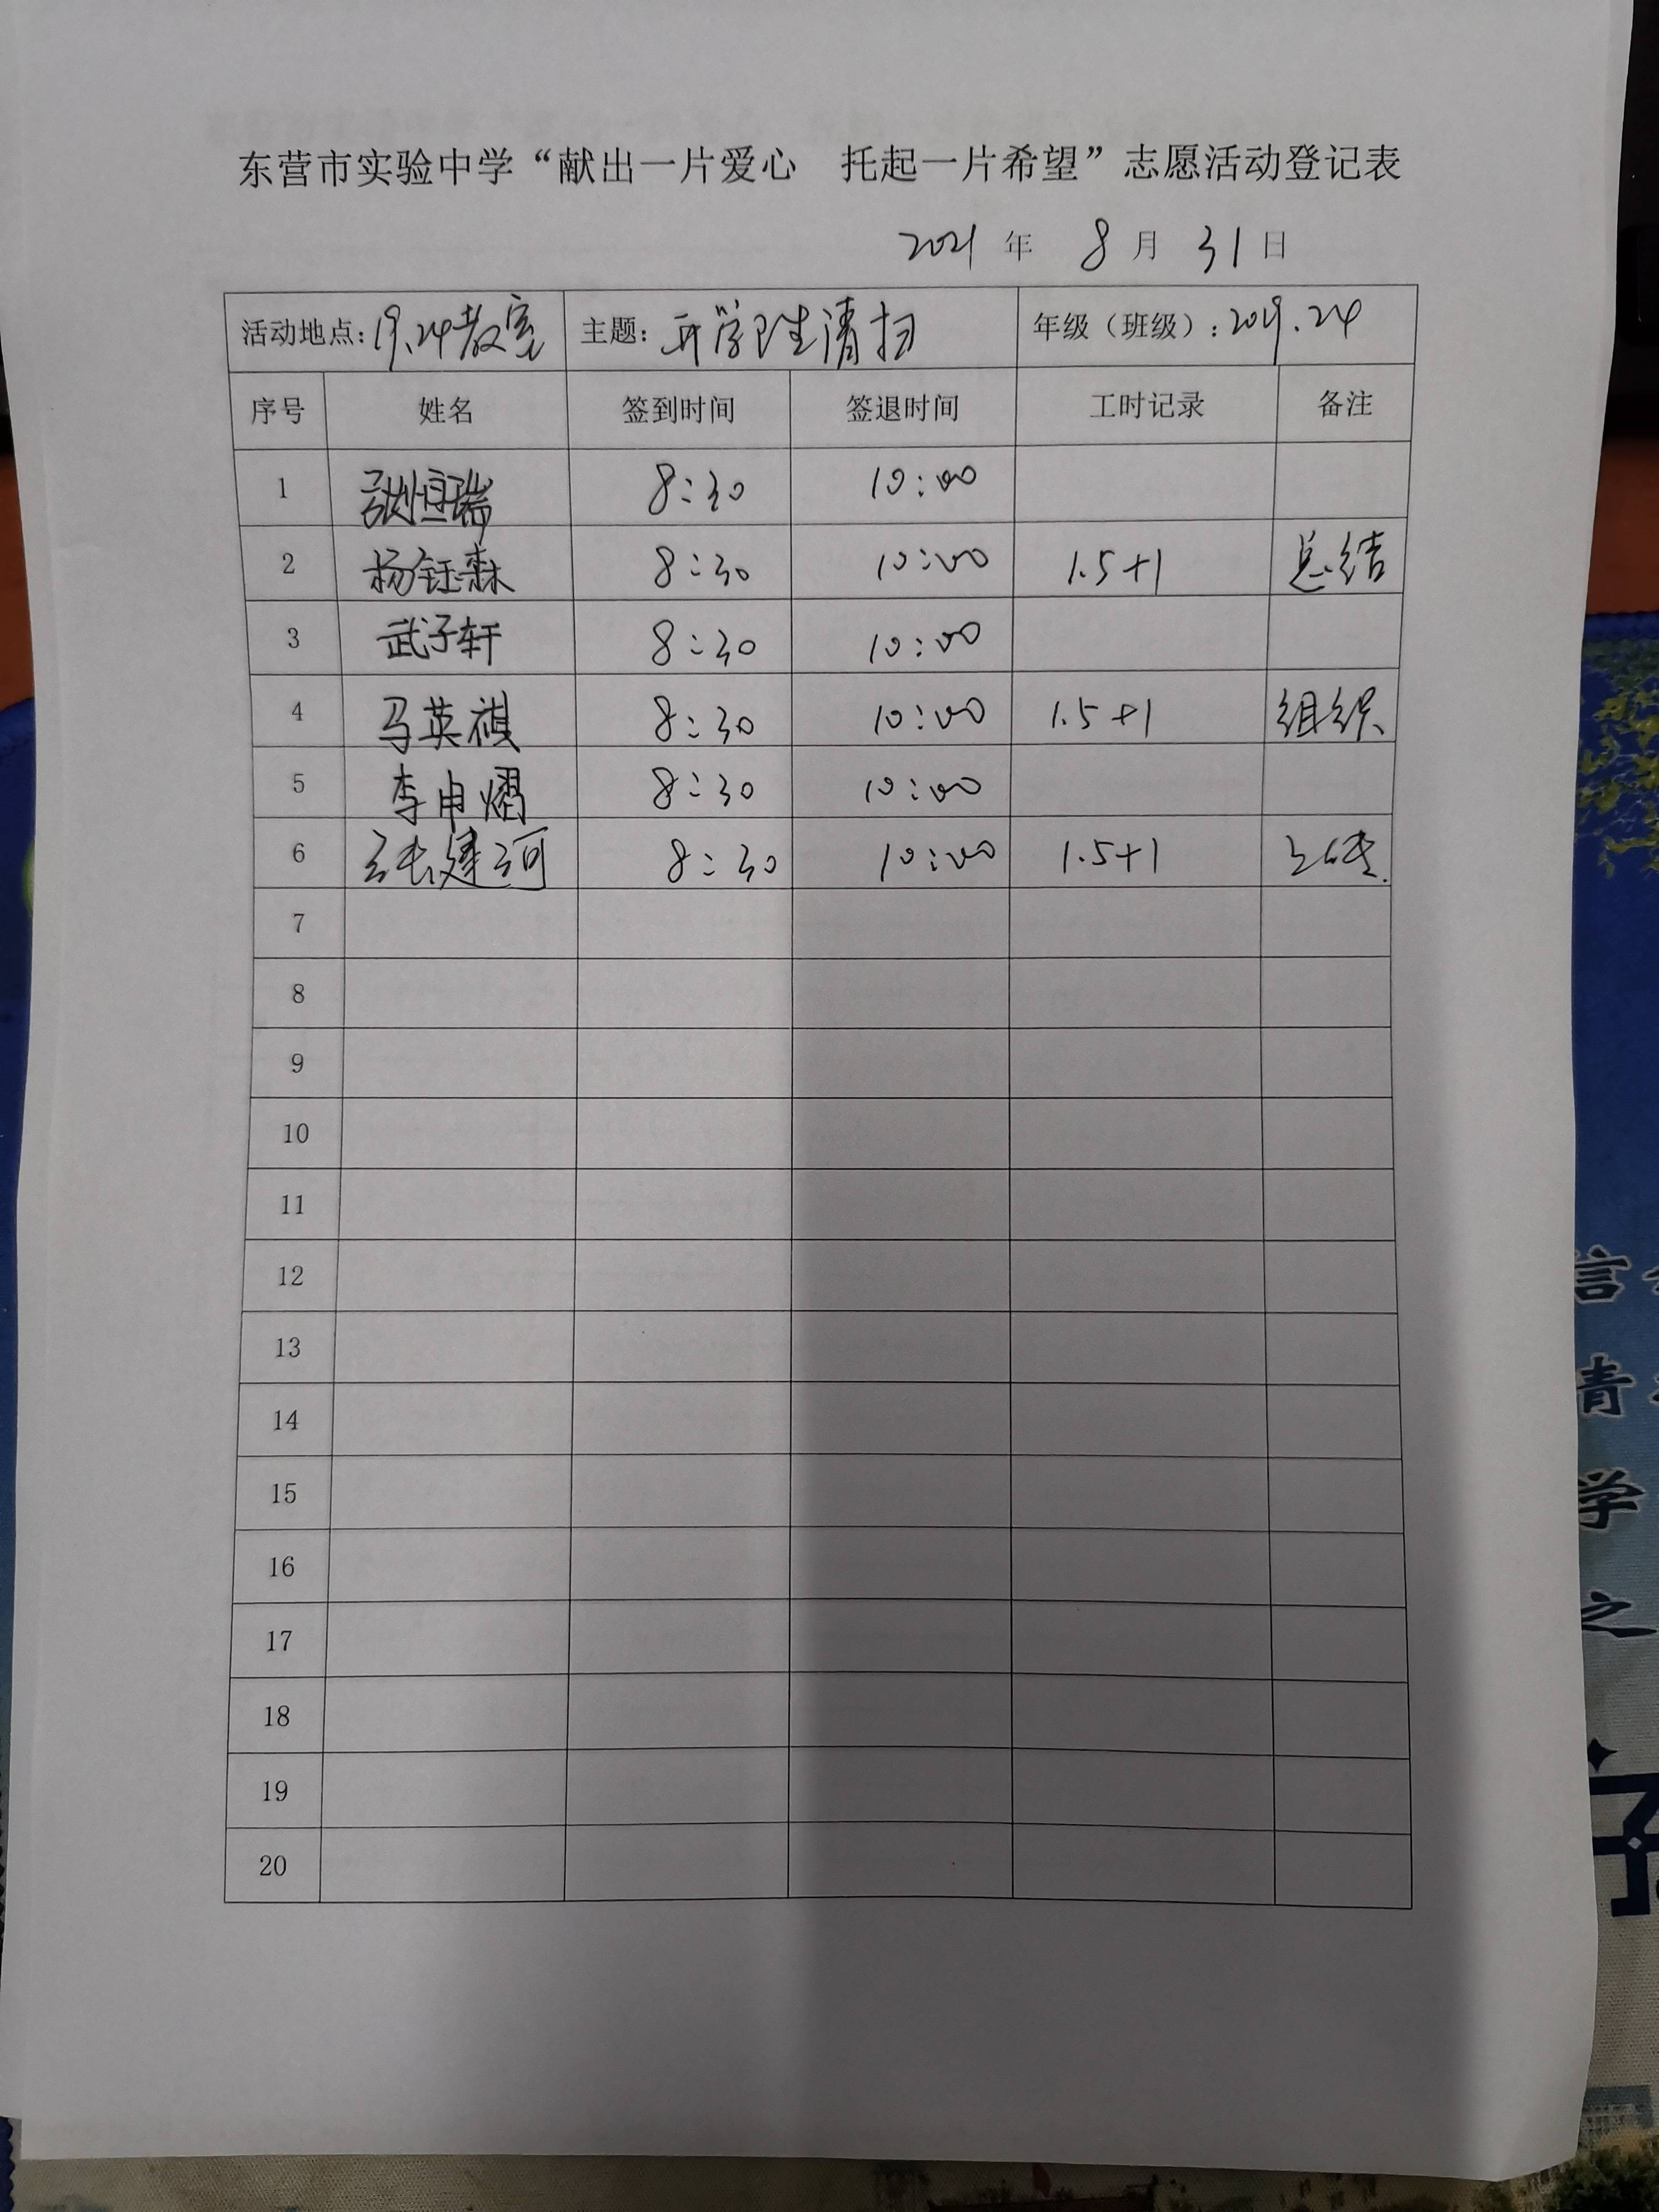 东营市实验中学“献出一片爱心 托起一片希望”志愿活动登记表
2021 年 8 月 31 日
活动地点：19.24教室 主题：开学卫生清扫 年级（班级）：2019.24
序号 姓名 签到时间 签退时间 工时记录 备注
1 恒瑞 8:30 10:00
2 杨钰森 8:30 10:00 1.5+1 总结
3 武子轩 8:30 10:00
4 马英祺 8:30 10:00 1.5+1 组织
5 李申熠 8:30 10:00
6 张建河 8:30 10:00 1.5+1 上传.
7
8
9
10
11
12
13
14
15
16
17
18
19
20
信
青
学
之